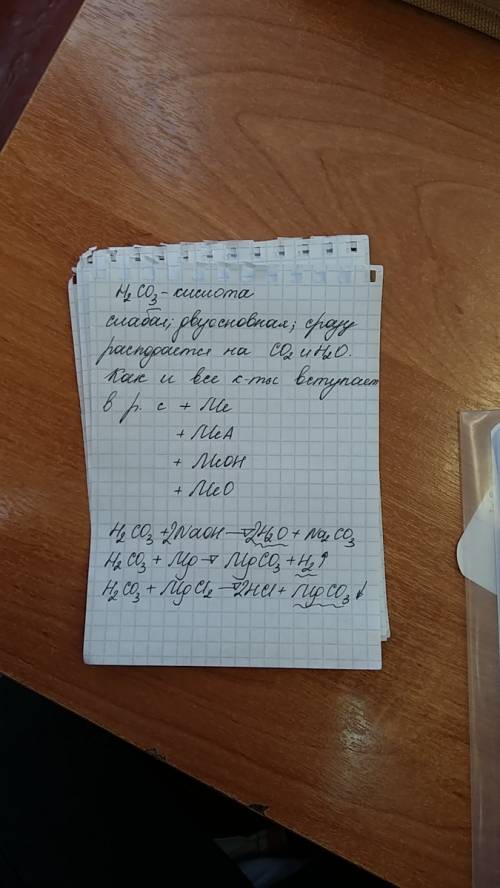 H₂CO₃ - кислота
слабая; двуосновная; сразу
распадается на CO₂ и H₂O.
Как и все к-ты вступает
в р. с + Me
+ MeA
+ MeOH
+ MeO
H₂CO₃ + 2NaOH → 2H₂O + Na₂CO₃
H₂CO₃ + Mg → MgCO₃ + H₂↑
H₂CO₃ + MgCl₂ → 2HCl + MgCO₃↓